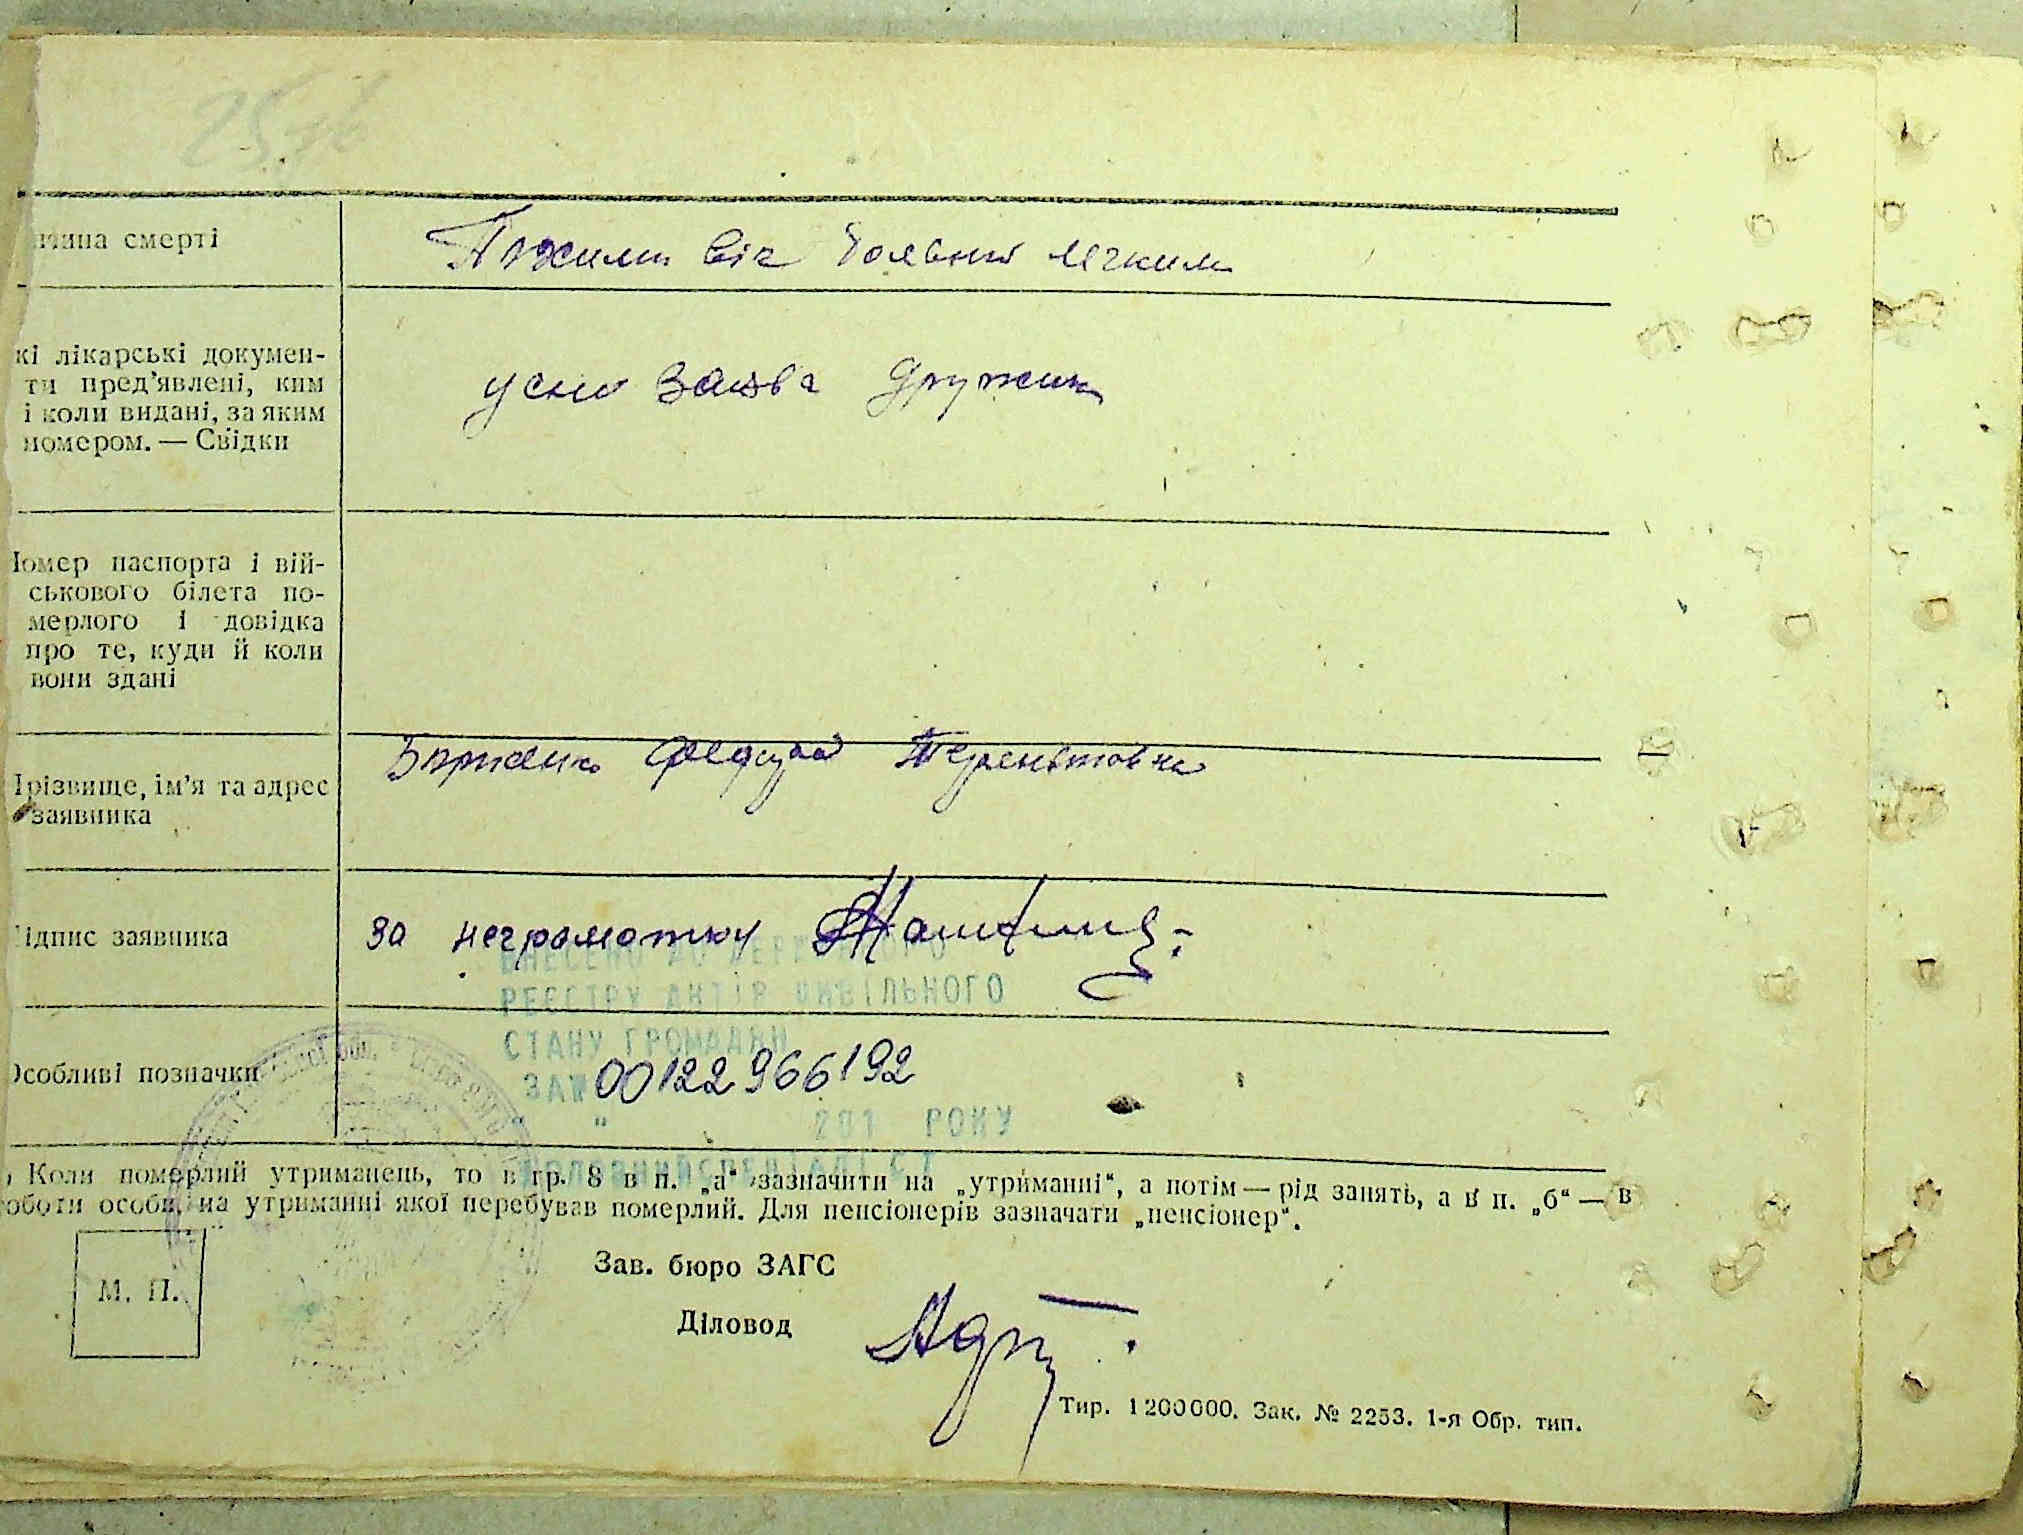 25 зв
чина смерті
Пожили вік больний легкими
кі лікарські докумен-
ти пред'явлені, ким
і коли видані, за яким
номером. — Свідки
усна заява дружини
Номер паспорта і вій-
ськового білета по-
мерлого і довідка
про те, куди й коли
вони здані
Прізвище, ім'я та адрес
заявника
Терентовна
ідпис заявника
за неграмотну
ВНЕСЕНО ДО ДЕРЖАВНОГО
РЕЄСТРУ АКТІВ ЦИВІЛЬНОГО
СТАНУ ГРОМАДЯН
Особливі позначки
ЗА № 00122966192
" " 201 РОКУ
ГОЛОВНИЙ СПЕЦІАЛІСТ
) Коли померлий утриманець, то в гр. 8 в п. „а“ зазначити на „утриманні“, а потім — рід занять, а в п. „б“ — в
роботи особи, на утриманні якої перебував померлий. Для пенсіонерів зазначати „пенсіонер“.
М. П.
Зав. бюро ЗАГС
Діловод
Тир. 1200000. Зак. № 2253. 1-я Обр. тип.